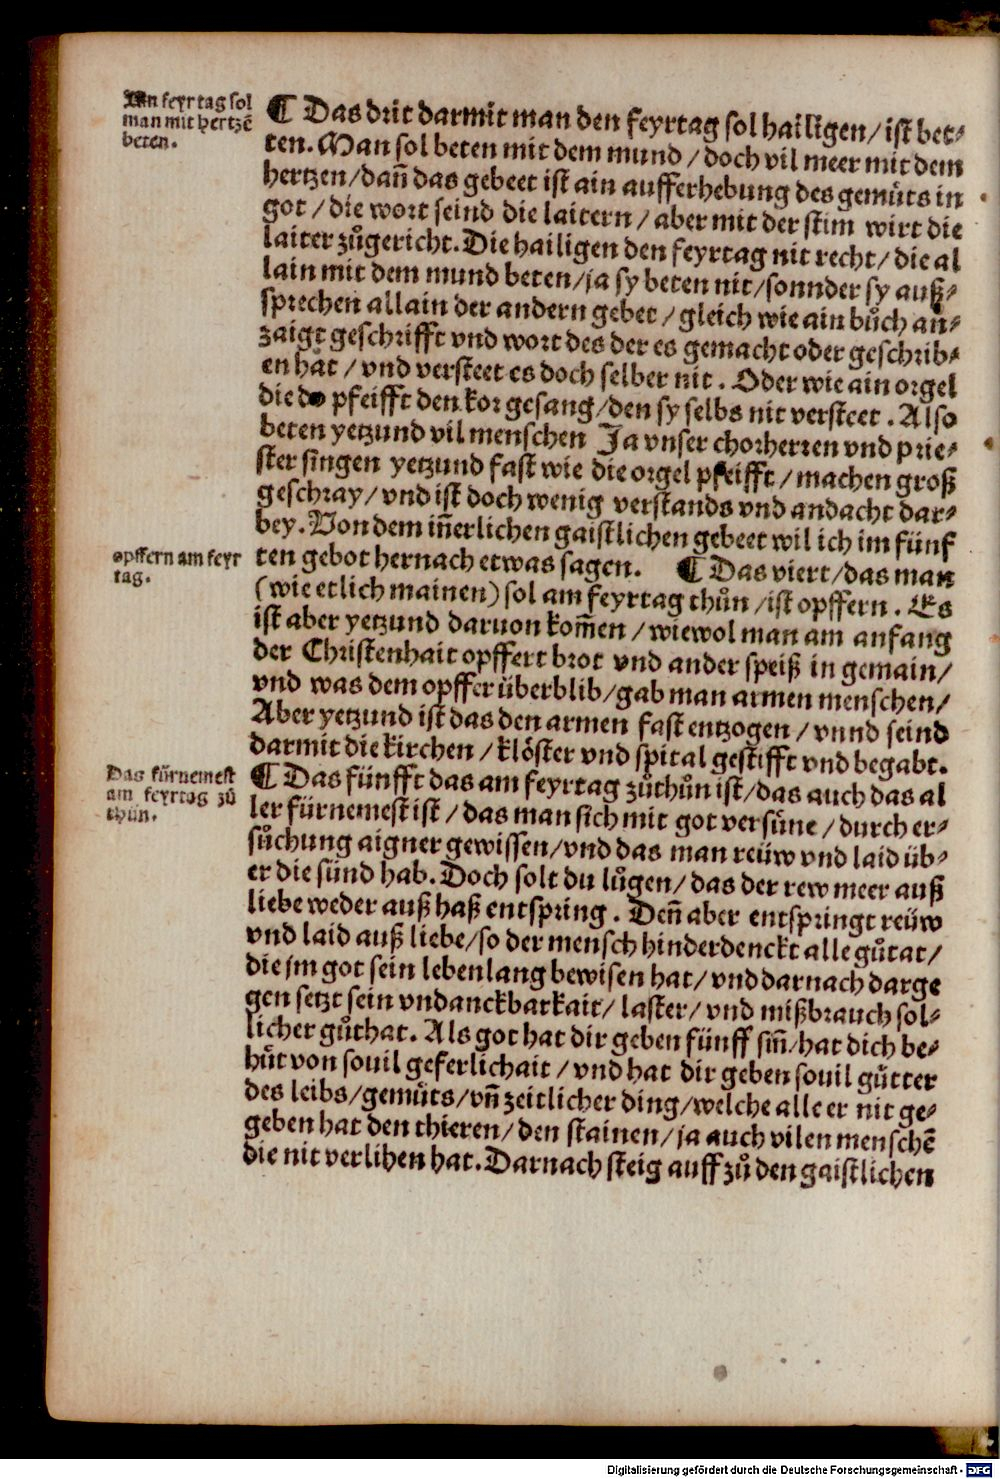 Am feyrtag sol
man mit hertzē
beten.
¶ Das drit darmit man den feyrtag sol hailigen/ ist bet⸗
ten. Man sol beten mit dem mund / doch vil meer mit dem
hertzen/ dañ das gebeet ist ain aufferhebung des gemuͤts in
got / die wort seind die laitern / aber mit der stim wirt die
laiter zuͦgericht. Die hailigen den feyrtag nit recht/ die al
lain mit dem mund beten/ ja sy beten nit/ sonnder sy auß⸗
sprechen allain der andern gebet / gleich wie ain buͦch an⸗
zaigt geschrifft vnd wort des der es gemacht oder geschrib⸗
en hat / vnd versteet es doch selber nit. Oder wie ain orgel
die do pfeifft den kor gesang/ den sy selbs nit versteet. Also
beten yetzund vil menschen Ja vnser chorherren vnd prie⸗
ster singen yetzund fast wie die orgel pfeifft / machen groß
geschray/ vnd ist doch wenig verstands vnd andacht dar⸗
bey. Von dem iñerlichen gaistlichen gebeet wil ich im fünf
ten gebot hernach etwas sagen. ¶ Das viert/ das man
opffern am feyr
tag.
(wie etlich mainen) sol am feyrtag thuͦn / ist opffern. Es
ist aber yetzund daruon kom̃en / wiewol man am anfang
der Christenhait opffert brot vnd ander speiß in gemain/
vnd was dem opffer überblib/ gab man armen menschen/
Aber yetzund ist das den armen fast entzogen / vnnd seind
darmit die kirchen / kloͤster vnd spital gestifft vnd begabt.
Das fürnemest
am feyrtag zuͦ
thuͦn.
¶ Das fünfft das am feyrtag zuͦthuͦn ist/ das auch das al
ler fürnemest ist / das man sich mit got versuͤne / durch er⸗
suͦchung aigner gewissen/ vnd das man reüw vnd laid üb⸗
er die sünd hab. Doch solt du luͦgen/ das der rew meer auß
liebe weder auß haß entspring. Deñ aber entspringt reüw
vnd laid auß liebe/ so der mensch hinderdenckt alle guͦtat/
die jm got sein lebenlang bewisen hat/ vnd darnach darge
gen setzt sein vndanckbarkait/ laster/ vnd mißbrauch sol⸗
licher guͦthat. Als got hat dir geben fünff sin̄/ hat dich be⸗
huͤt von souil geferlichait / vnd hat dir geben souil guͤtter
des leibs/ gemuͤts/ vñ zeitlicher ding/ welche alle er nit ge⸗
geben hat den thieren/ den stainen/ ja auch vilen menschē
die nit verlihen hat. Darnach steig auff zuͦ den gaistlichen
Digitalisierung gefördert durch die Deutsche Forschungsgemeinschaft - DFG